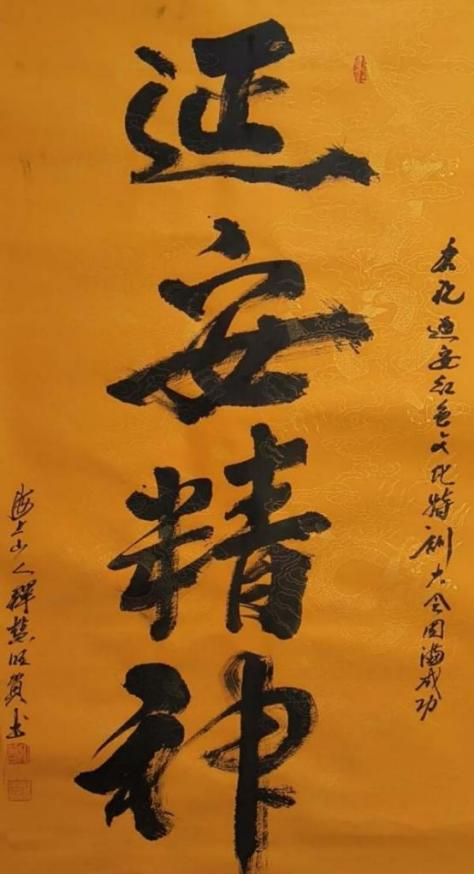 恭祝延安红色文化特训大会圆满成功
延安精神
海上山人释慧旺贺书